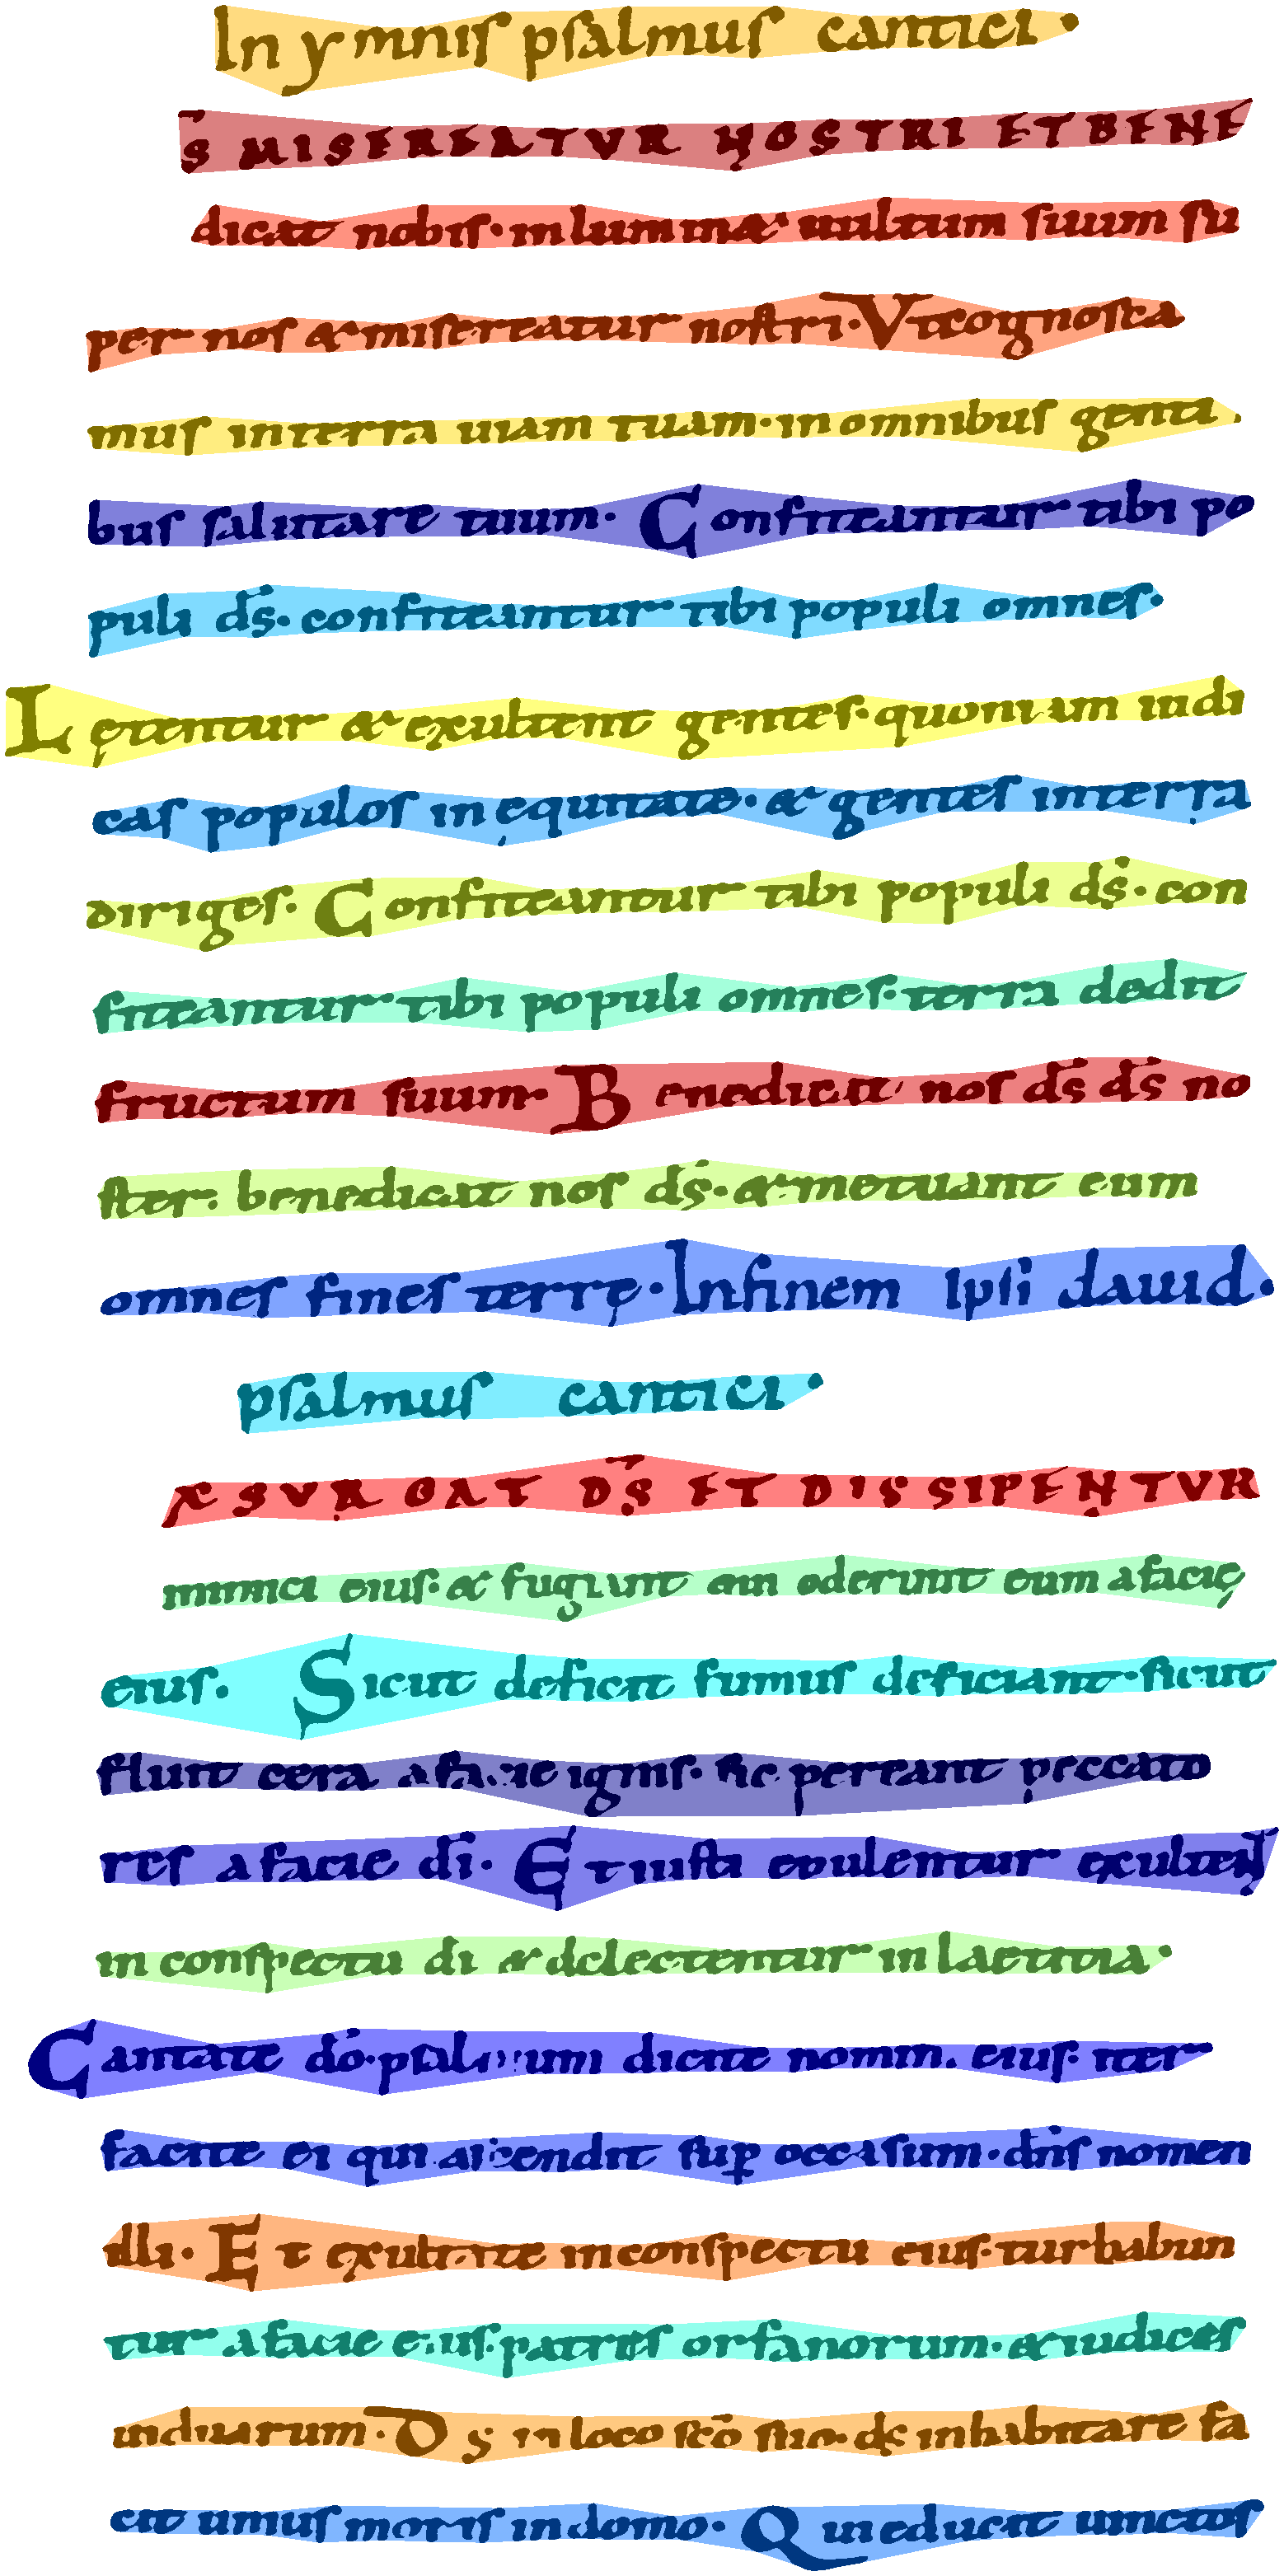 In ymnis psalmus cantici ·
S̄ MISEREATVR NOSTRI ET BENE
dicat nobis · inluminet uultum suum su
per nos & misereatur nostri · Vt cognosca
mus in terra uiam tuam · in omnibus genti
bus salutare tuum · Confiteantur tibi po
puli ds̄ · confiteantur tibi populi omnes ·
Lętentur & exultent gentes · quoniam iudi
cas populos in ęquitate · & gentes in terra
diriges · Confiteantur tibi populi ds̄ · con
fiteantur tibi populi omnes · terra dedit
fructum suum · Benedicat nos ds̄ ds̄ no
ster · benedicat nos ds̄ · & metuant eum
omnes fines terrę · In finem Ipsi dauid ·
psalmus cantici ·
XSVRGAT DS̄ ET DISSIPENTVR
inimici eius · & fugiant qui oderunt eum a facie
eius · Sicut deficit fumus deficiant · sicut
fluit cera a facie ignis · sic pereant peccato
res a facie dī · Et iusti epulentur exultent
in conspectu dī & delectentur in laetitia ·
Cantate dō · psalmum dicite nomini eius · iter
facite ei qui ascendit suꝑ occasum · dn̄s nomen
illi · Et exultate in conspectu eius · turbabun
tur a facie eius · patris orfanorum · & iudices
uiduarum · Ds in loco scō suo · ds inhabitare fa
cit unius moris in domo · Qui educit uinctos